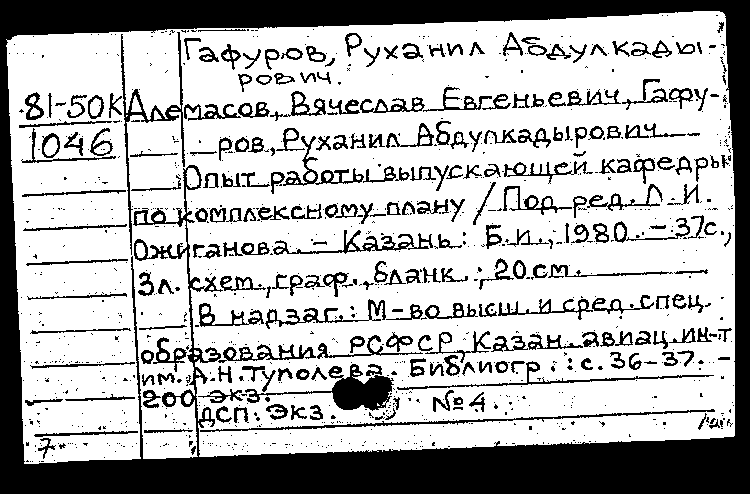 Гафуров, Руханил Абдулкады-
рович.
81-50К
1046
Алемасов, Вячеслав Евгеньевич, Гафу-
ров, Руханил Абдулкадырович
Опыт работы выпускающей кафедры
по комплексному плану / Под ред. Л.И.
Ожиганова. - Казань: Б.и., 1980. - 37с.,
3л. схем., граф., бланк.; 20см.
В надзаг.: М-во высш. и сред. спец.
образования РСФСР, Казан. авиац. ин-т
им. А.Н. Туполева. Библиогр.: с. 36-37. -
200 экз.
ДСП: Экз. №4.
7